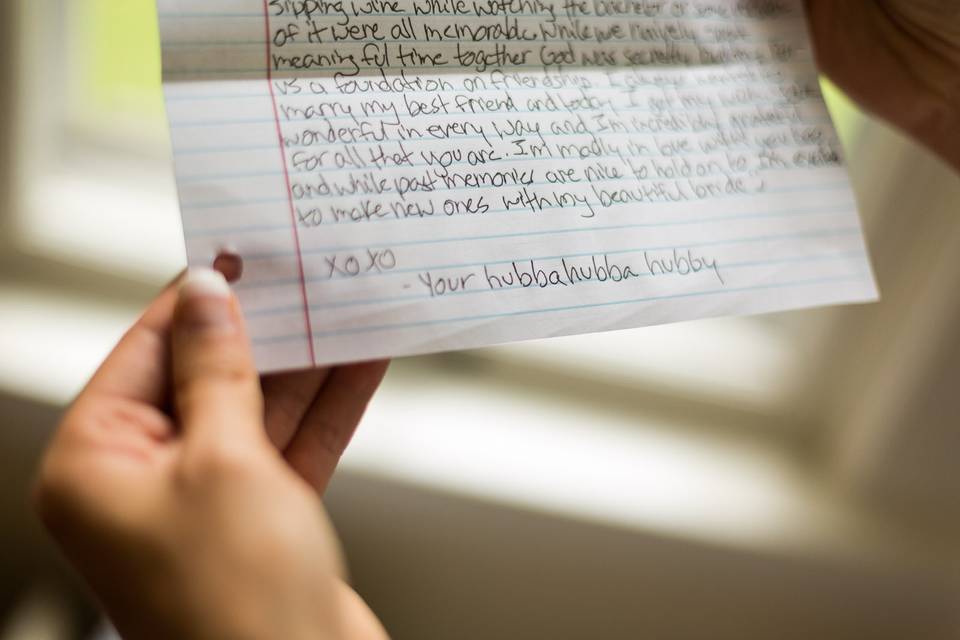 sipping wine while watching the bachelor or
of it were all memorable. While we naively spent
meaningful time together God was secretly
us a foundation on friendship. I
marry my best friend and today I get my
wonderful in every way and I'm incredibly grateful
for all that you are. I'm madly in love with
and while past memories are nice to hold on to, I'm
to make new ones with my beautiful bride.
xoxo
- Your hubbahubba hubby